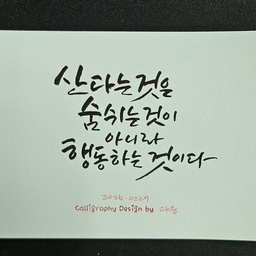 산다는것은
숨쉬는것이
아니라
행동하는 것이다
Calligraphy Design by